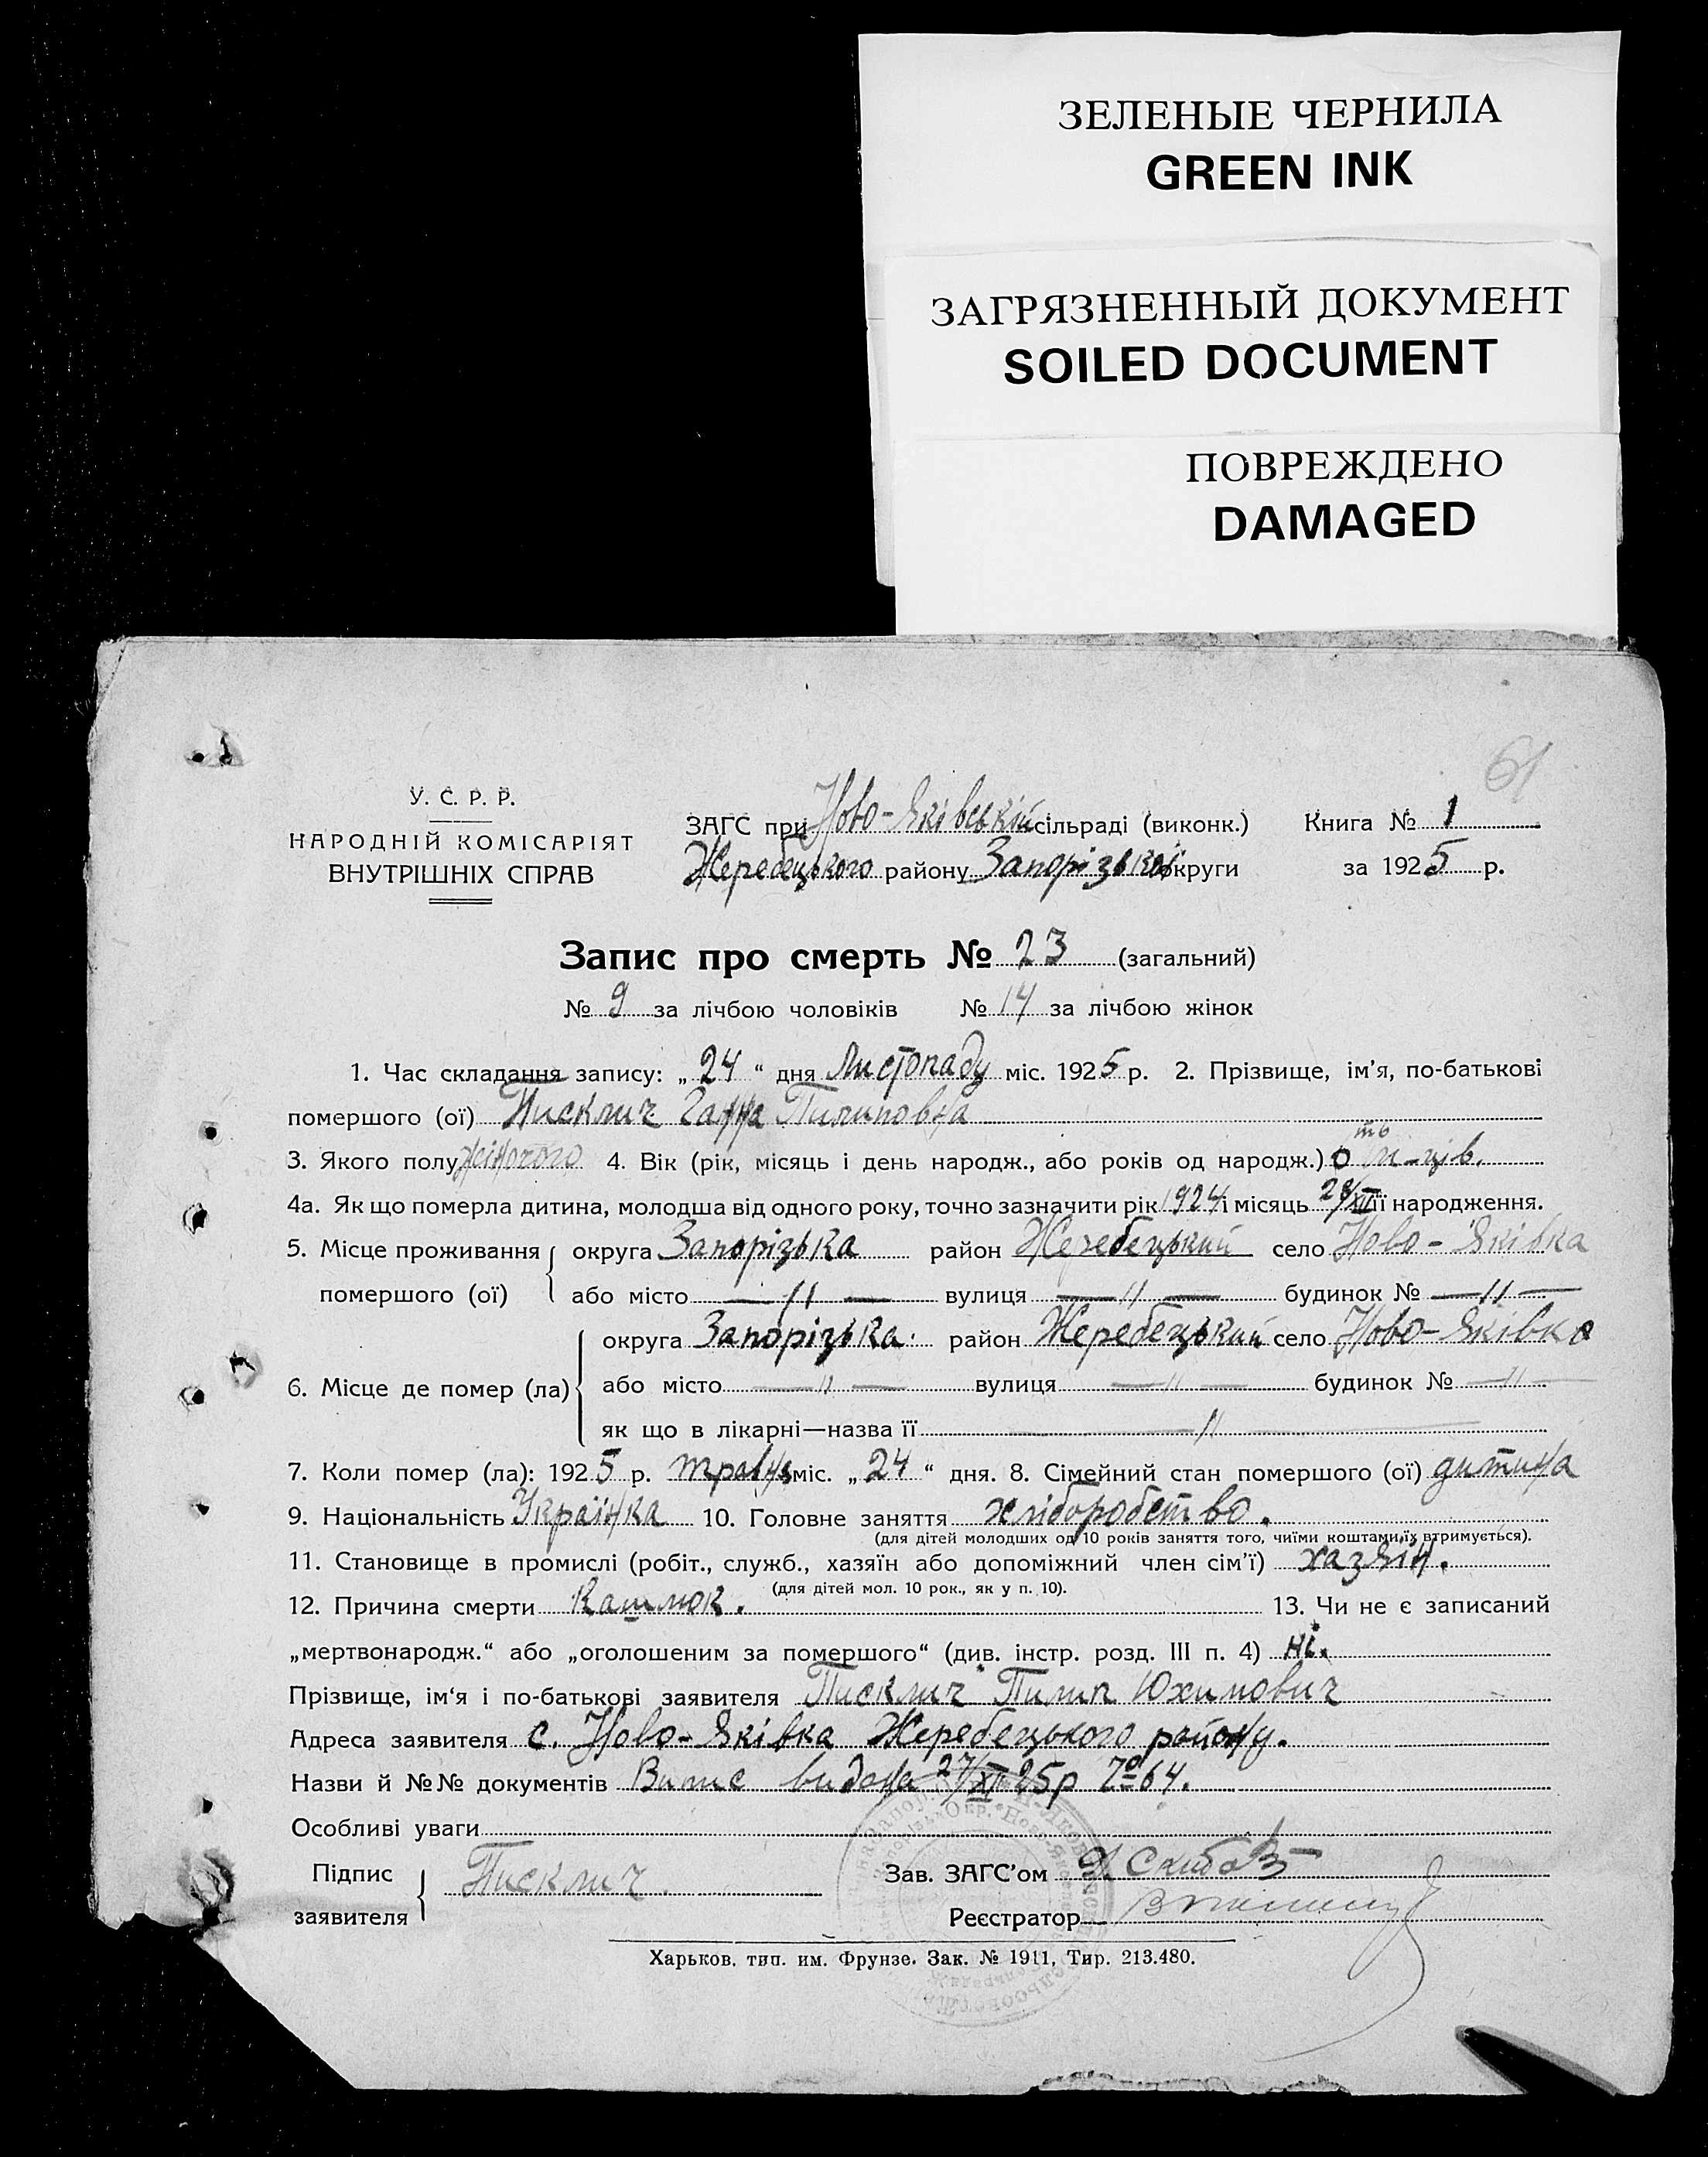 ЗЕЛЕНЫЕ ЧЕРНИЛА
GREEN INK
ЗАГРЯЗНЕННЫЙ ДОКУМЕНТ
SOILED DOCUMENT
ПОВРЕЖДЕНО
DAMAGED
61
У. С. Р. Р.
НАРОДНІЙ КОМІСАРІЯТ
ВНУТРІШНІХ СПРАВ
ЗАГС при Ново-Яківській сільраді (виконк.) Книга № 1
Жеребецького району Запорізької округи за 1925 р.
Запис про смерть № 23 (загальний)
№ 9 за лічбою чоловіків № 14 за лічбою жінок
1. Час складання запису: „24“ дня Листопаду міс. 1925 р. 2. Прізвище, ім’я, по-батькові
помершого (ої) Писклич Ганна Пилиповна
3. Якого полу жіночого 4. Вік (рік, місяць і день народж., або років од народж.)
4а. Як що померла дитина, молодша від одного року, точно зазначити рік 1924 і місяць 28/XII її народження.
5. Місце проживання округа Запорізька район Жеребецький село Ново-Яківка
помершого (ої) або місто — // — вулиця — // — будинок № — // —
округа Запорізька. район Жеребецький село Ново-Яківка
6. Місце де помер (ла) або місто — // — вулиця — // — будинок № — // —
як що в лікарні—назва її — // —
7. Коли помер (ла): 1925 р. травня міс. „24“ дня. 8. Сімейний стан помершого (ої) дитина
9. Національність Українка 10. Головне заняття хліборобство.
(для дітей молодших од 10 років заняття того, чиїми коштами їх втримується).
11. Становище в промислі (робіт., служб., хазяїн або допоміжний член сім’ї) хазяїн.
(для дітей мол. 10 рок., як у п. 10).
12. Причина смерти Кашлюк. 13. Чи не є записаний
„мертвонародж.“ або „оголошеним за помершого“ (див. інстр. розд. III п. 4) ні.
Прізвище, ім‘я і по-батькові заявителя Писклич Пилип Юхимович
Адреса заявителя с. Ново-Яківка Жеребецького району.
Назви й №№ документів Випис видана 27/XI 25р № 64.
Особливі уваги
Підпис
заявителя
Писклич
Зав. ЗАГС’ом Скиба
Реєстратор
Харьков. тип. им. Фрунзе. Зак. № 1911, Тир. 213.480.